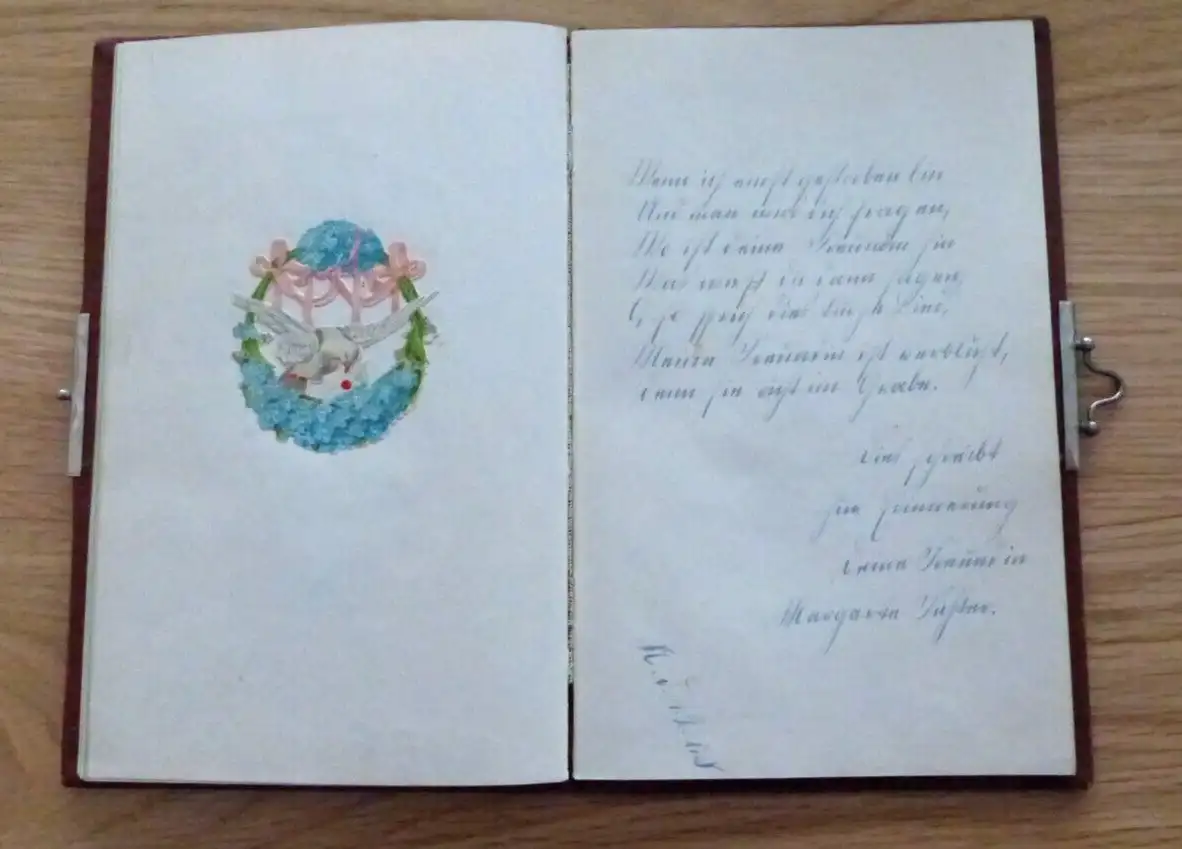 Wenn ich einst gestorben bin
Und man wird dich fragen,
Wo ist deine Freundin hin
Was wirst du dann sagen,
O, so sprich
Meine Freundin ist verblüht,
denn sie ruht im Grabe. !
Dies schreibt
zur Erinnerung
deine Freundin
Margarete